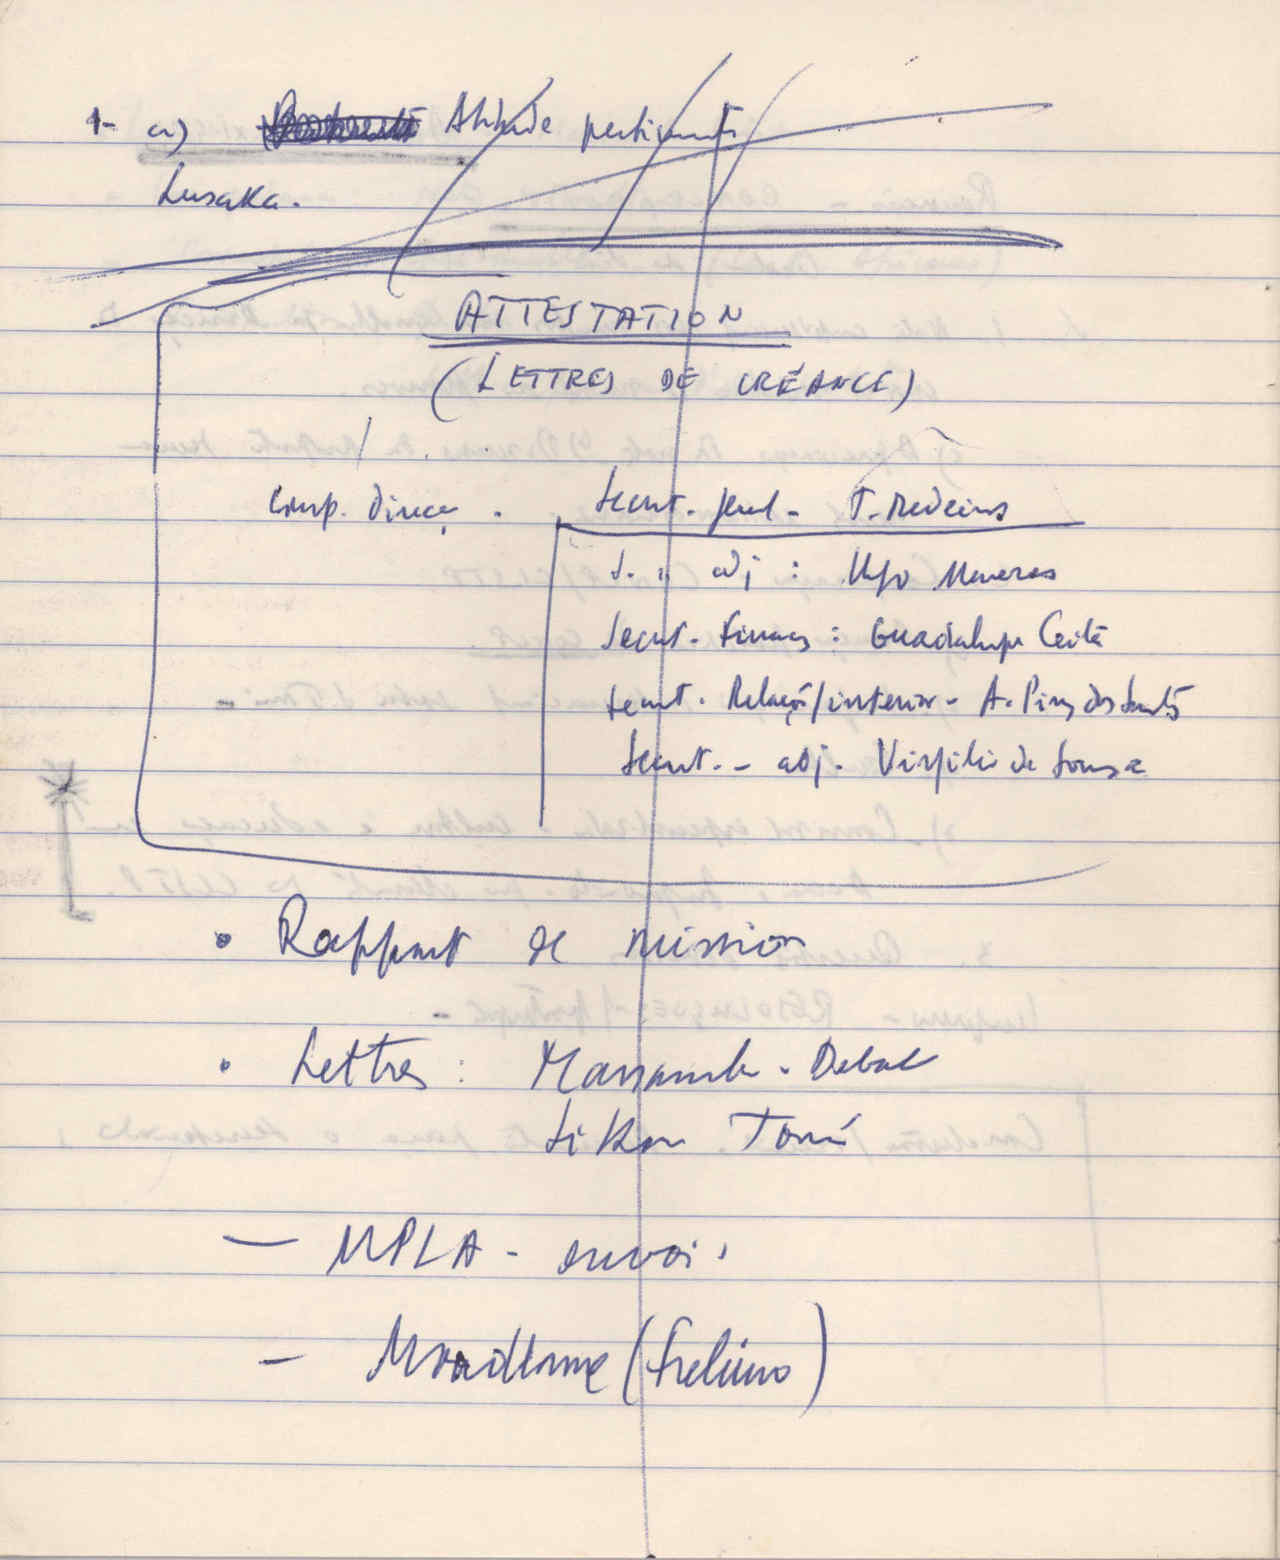 1- a) Attitude pertinente
Lusaka.
ATTESTATION
(LETTRES DE CRÉANCE)
Comp. Direcç.
Secret. geral - T. Medeiros
S. " adj : Hugo Menezes
Secret. Finanças : Guadalupe Ceita
Secret. Relações/interior - A. Pires dos Santos
Secret. - adj. Virgilio de Sousa
• Rapport de mission
• Lettres : Massamba - Debat
Sékou Touré
— MPLA - envoi
— Mondlane (Frelimo)